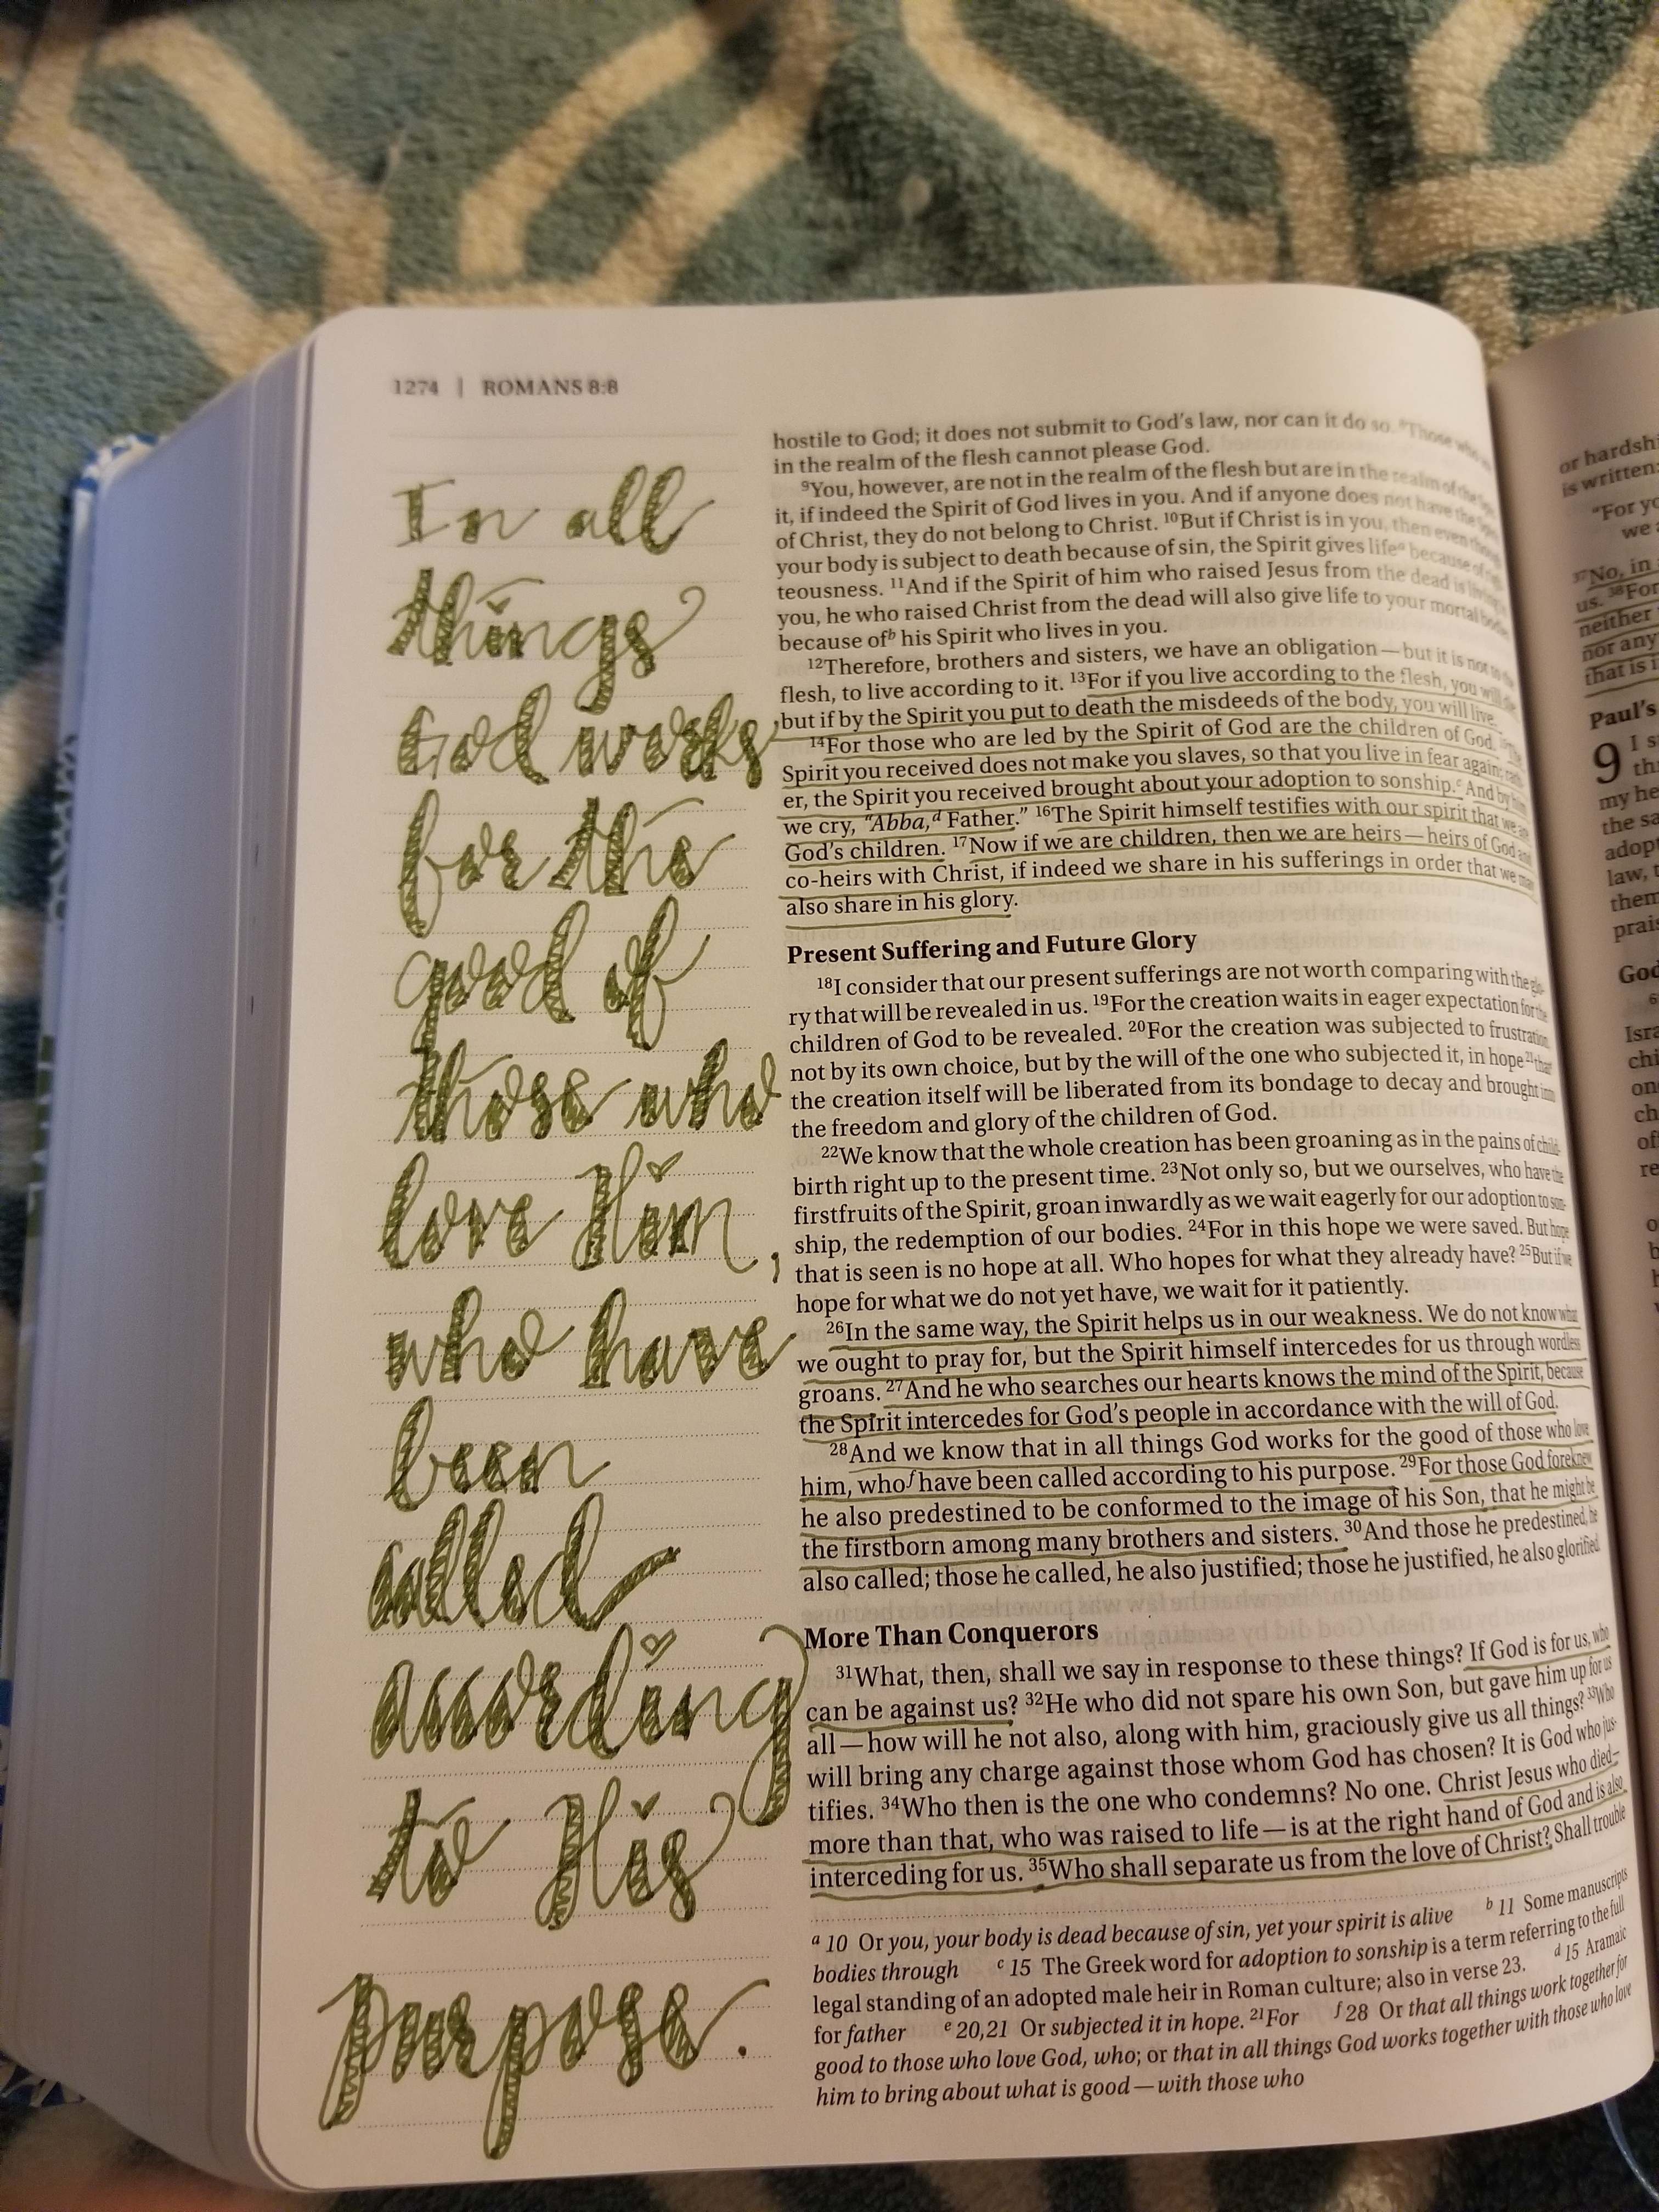 1274 | ROMANS 8:8
In all
things
God works
for the
good of
those who
love Him,
who have
been
called
according
to His
purpose.
hostile to God; it does not submit to God's law, nor can it do so. ⁸Those who
in the realm of the flesh cannot please God.
⁹You, however, are not in the realm of the flesh but are in the realm of the
it, if indeed the Spirit of God lives in you. And if anyone does not have the
of Christ, they do not belong to Christ. ¹⁰But if Christ is in you, then even though
your body is subject to death because of sin, the Spirit gives lifeᵃ because of
teousness. ¹¹And if the Spirit of him who raised Jesus from the dead is living
you, he who raised Christ from the dead will also give life to your mortal
because ofᵇ his Spirit who lives in you.
¹²Therefore, brothers and sisters, we have an obligation—but it is not to the
flesh, to live according to it. ¹³For if you live according to the flesh, you will die;
but if by the Spirit you put to death the misdeeds of the body, you will live.
¹⁴For those who are led by the Spirit of God are the children of God. The
Spirit you received does not make you slaves, so that you live in fear again; rath-
er, the Spirit you received brought about your adoption to sonship.ᶜ And by him
we cry, "Abba,ᵈ Father." ¹⁶The Spirit himself testifies with our spirit that we are
God's children. ¹⁷Now if we are children, then we are heirs—heirs of God and
co-heirs with Christ, if indeed we share in his sufferings in order that we may
also share in his glory.
Present Suffering and Future Glory
¹⁸I consider that our present sufferings are not worth comparing with the glo-
ry that will be revealed in us. ¹⁹For the creation waits in eager expectation for the
children of God to be revealed. ²⁰For the creation was subjected to frustration,
not by its own choice, but by the will of the one who subjected it, in hope ²¹that
the creation itself will be liberated from its bondage to decay and brought into
the freedom and glory of the children of God.
²²We know that the whole creation has been groaning as in the pains of child-
birth right up to the present time. ²³Not only so, but we ourselves, who have the
firstfruits of the Spirit, groan inwardly as we wait eagerly for our adoption to son-
ship, the redemption of our bodies. ²⁴For in this hope we were saved. But hope
that is seen is no hope at all. Who hopes for what they already have? ²⁵But if we
hope for what we do not yet have, we wait for it patiently.
²⁶In the same way, the Spirit helps us in our weakness. We do not know what
we ought to pray for, but the Spirit himself intercedes for us through wordless
groans. ²⁷And he who searches our hearts knows the mind of the Spirit, because
the Spirit intercedes for God's people in accordance with the will of God.
²⁸And we know that in all things God works for the good of those who love
him, whoᶠ have been called according to his purpose. ²⁹For those God foreknew
he also predestined to be conformed to the image of his Son, that he might be
the firstborn among many brothers and sisters. ³⁰And those he predestined, he
also called; those he called, he also justified; those he justified, he also glorified.
More Than Conquerors
³¹What, then, shall we say in response to these things? If God is for us, who
can be against us? ³²He who did not spare his own Son, but gave him up for us
all—how will he not also, along with him, graciously give us all things? ³³Who
will bring any charge against those whom God has chosen? It is God who jus-
tifies. ³⁴Who then is the one who condemns? No one. Christ Jesus who died—
more than that, who was raised to life—is at the right hand of God and is also
interceding for us. ³⁵Who shall separate us from the love of Christ? Shall trouble
ᵃ 10 Or you, your body is dead because of sin, yet your spirit is alive ᵇ 11 Some manuscripts
bodies through ᶜ 15 The Greek word for adoption to sonship is a term referring to the full
legal standing of an adopted male heir in Roman culture; also in verse 23. ᵈ 15 Aramaic
for father ᵉ 20,21 Or subjected it in hope. ²¹For ᶠ 28 Or that all things work together for
good to those who love God, who; or that in all things God works together with those who love
him to bring about what is good—with those who
or
is written:
"For
we
³⁷No, in
us. ³⁸For
neither
nor any
that is
Paul's
9 I
my
the
law,
them
God